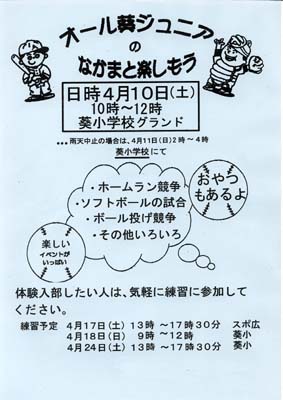 オール葵ジュニア
の
なかまと楽しもう
日時4月10日(土)
10時～12時
葵小学校グランド
…雨天中止の場合は、4月11日(日)2時～4時
葵小学校にて
おやつ
もあるよ
・ホームラン競争
・ソフトボールの試合
・ボール投げ競争
・その他いろいろ
楽しい
イベントが
いっぱい
体験入部したい人は、気軽に練習に参加して
ください。
練習予定 4月17日(土) 13時～17時30分 スポ広
4月18日(日) 9時～12時 葵小
4月24日(土) 13時～17時30分 葵小